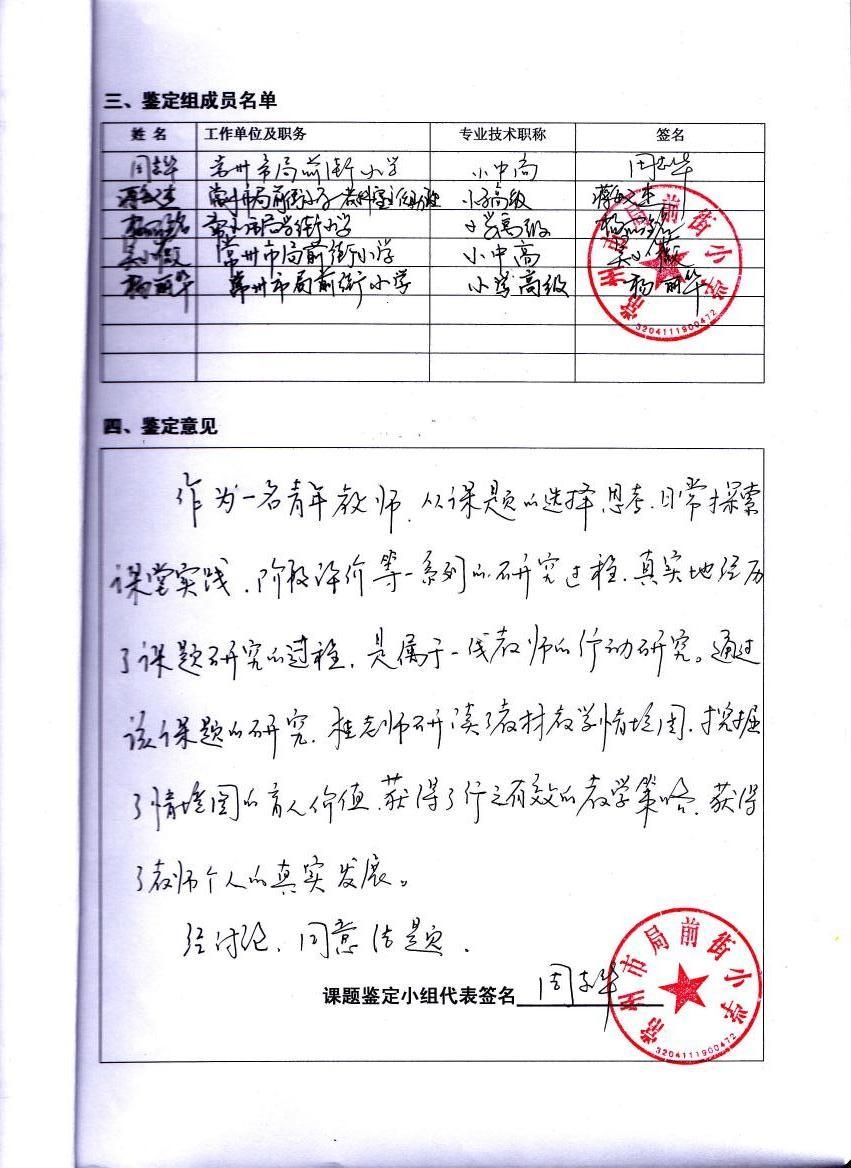 三、鉴定组成员名单
姓 名 工作单位及职务 专业技术职称 签名
周志华 常州市局前街小学 小中高 周志华
常州市局前街小学 小学高级
常州市局前街小学 小学高级
常州市局前街小学 小中高
杨丽华 常州市局前街小学 小学高级 杨丽华
常州市局前街小学
3204111900472
四、鉴定意见
作为一名青年教师，从课题的选择、思考、日常探索
课堂实践、阶段评价等一系列的研究过程，真实地经历
了课题研究的过程，是属于一线教师的行动研究。通过
该课题的研究，桂老师研读了教材教学情境图，挖掘
了情境图的育人价值，获得了行之有效的教学策略，获得
了教师个人的真实发展。
经讨论，同意结题。
课题鉴定小组代表签名 周志华
常州市局前街小学
3204111900472